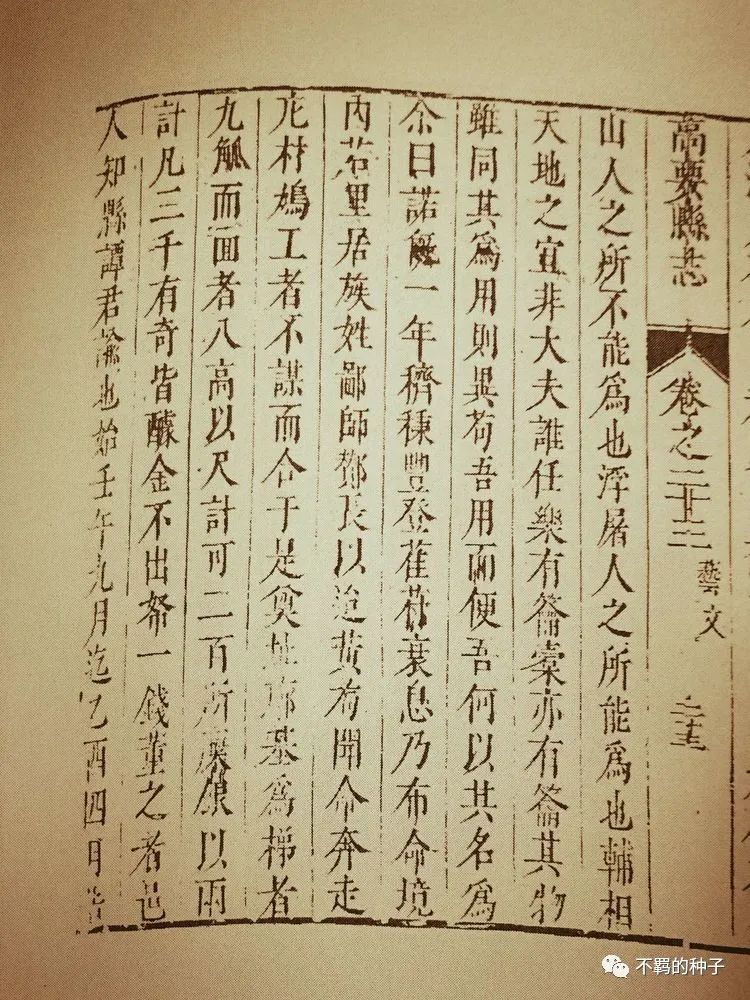 高要縣志 卷之二十三 藝文
山人之所不能爲也浮屠人之所能爲也輔相
天地之宜非大夫誰任樂有籥橐亦有籥其物
雖同其爲用則異苟吾用而便吾何以其名爲
余曰諾既一年穧種豐登萑苻衰息乃布命境
內若里居族姓鄙師酇長以迨黃耇聞命奔走
庀材鳩工者不謀而合于是奠址廓基爲梯者
九觚而面者八高以尺計可二百所縻銀以兩
計凡三千有奇皆醵金不出帑一錢董之者邑
人知縣譚君諭也始壬午九月迄乙酉四月
不羁的种子